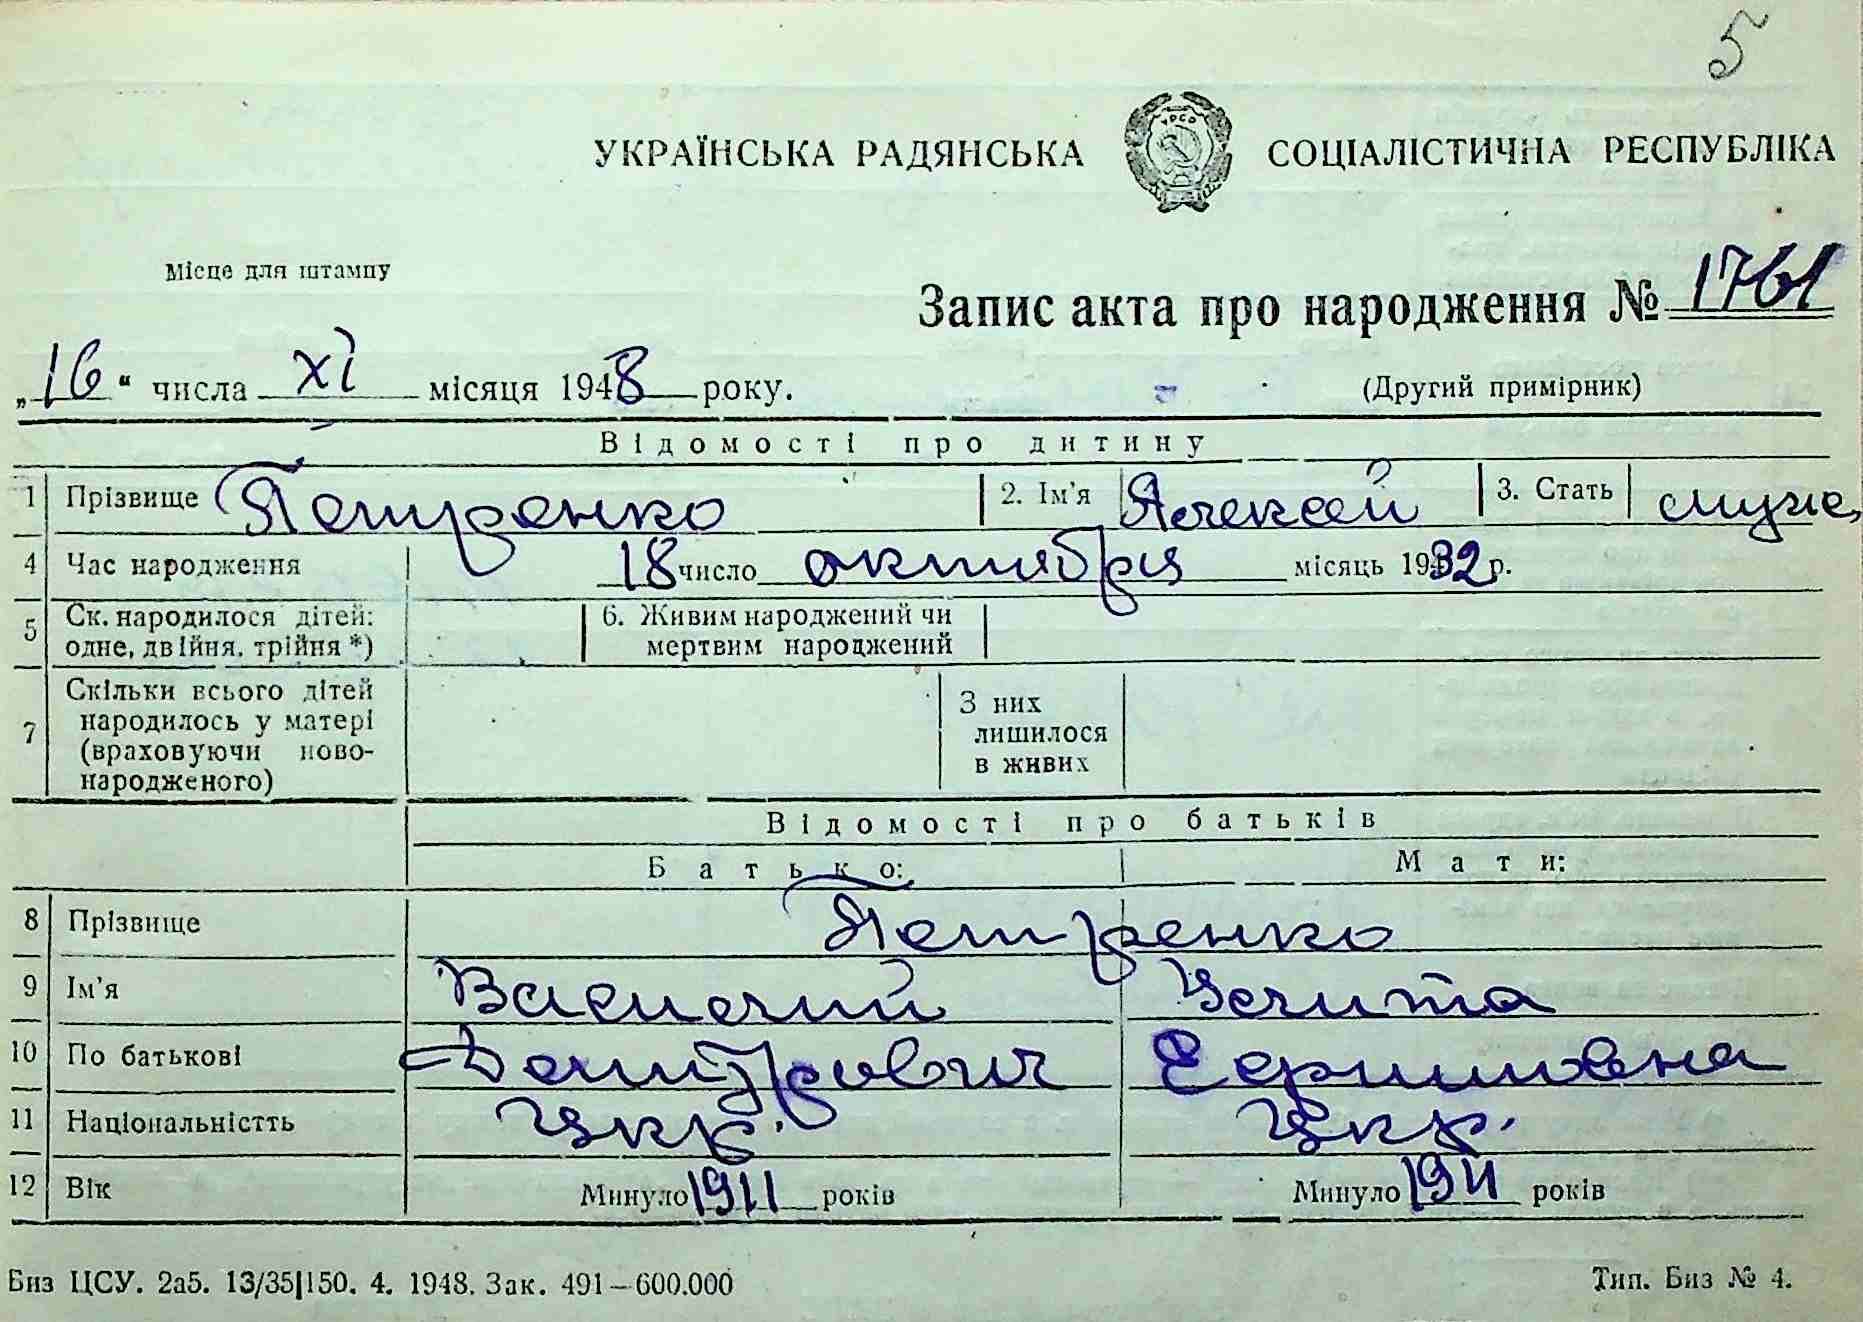 5
УКРАЇНСЬКА РАДЯНСЬКА СОЦІАЛІСТИЧНА РЕСПУБЛІКА
УРСР
Місце для штампу
Запис акта про народження № 1761
„16“ числа XI місяця 1948 року. (Другий примірник)
Відомості про дитину
1 Прізвище Петренко 2. Ім'я Алексей 3. Стать муж,
4 Час народження 18 число октября місяць 1932 р.
5 Ск. народилося дітей: одне, двійня, трійня *) 6. Живим народжений чи мертвим народжений
7 Скільки всього дітей народилось у матері (враховуючи ново-народженого) З них лишилося в живих
Відомості про батьків
Батько: Мати:
8 Прізвище Петренко
9 Ім'я Василий
10 По батькові Дмитрович
11 Національністть Укр. Укр.
12 Вік Минуло 1911 років Минуло 1911 років
Биз ЦСУ. 2а5. 13/35|150. 4. 1948. Зак. 491—600.000 Тип. Биз № 4.